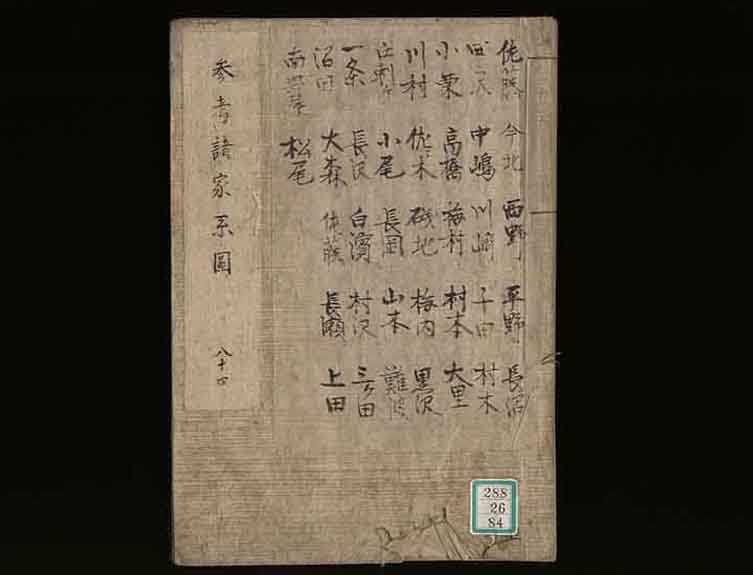 佐藤 今北 西野 平野 長沼
中嶋 川崎 千田 村木
小栗 高橋 梅村 村本 大里
川村 佐々木 梅内 黒沢
小尾 長岡 山本 難波
一条 長沢 白濱 村沢 三ヶ田
沼田 大森 佐藤 長瀬 上田
松尾
参考諸家系圖 八十四
288
26
84